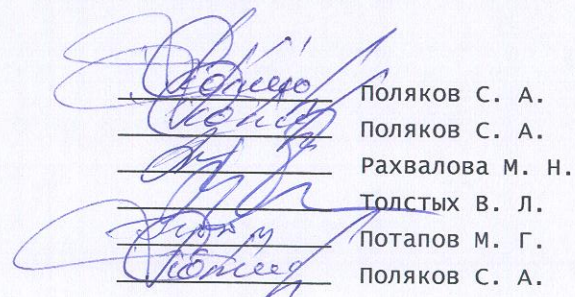 Поляков С. А.
Поляков С. А.
Рахвалова М. Н.
Толстых В. Л.
Потапов М. Г.
Поляков С. А.